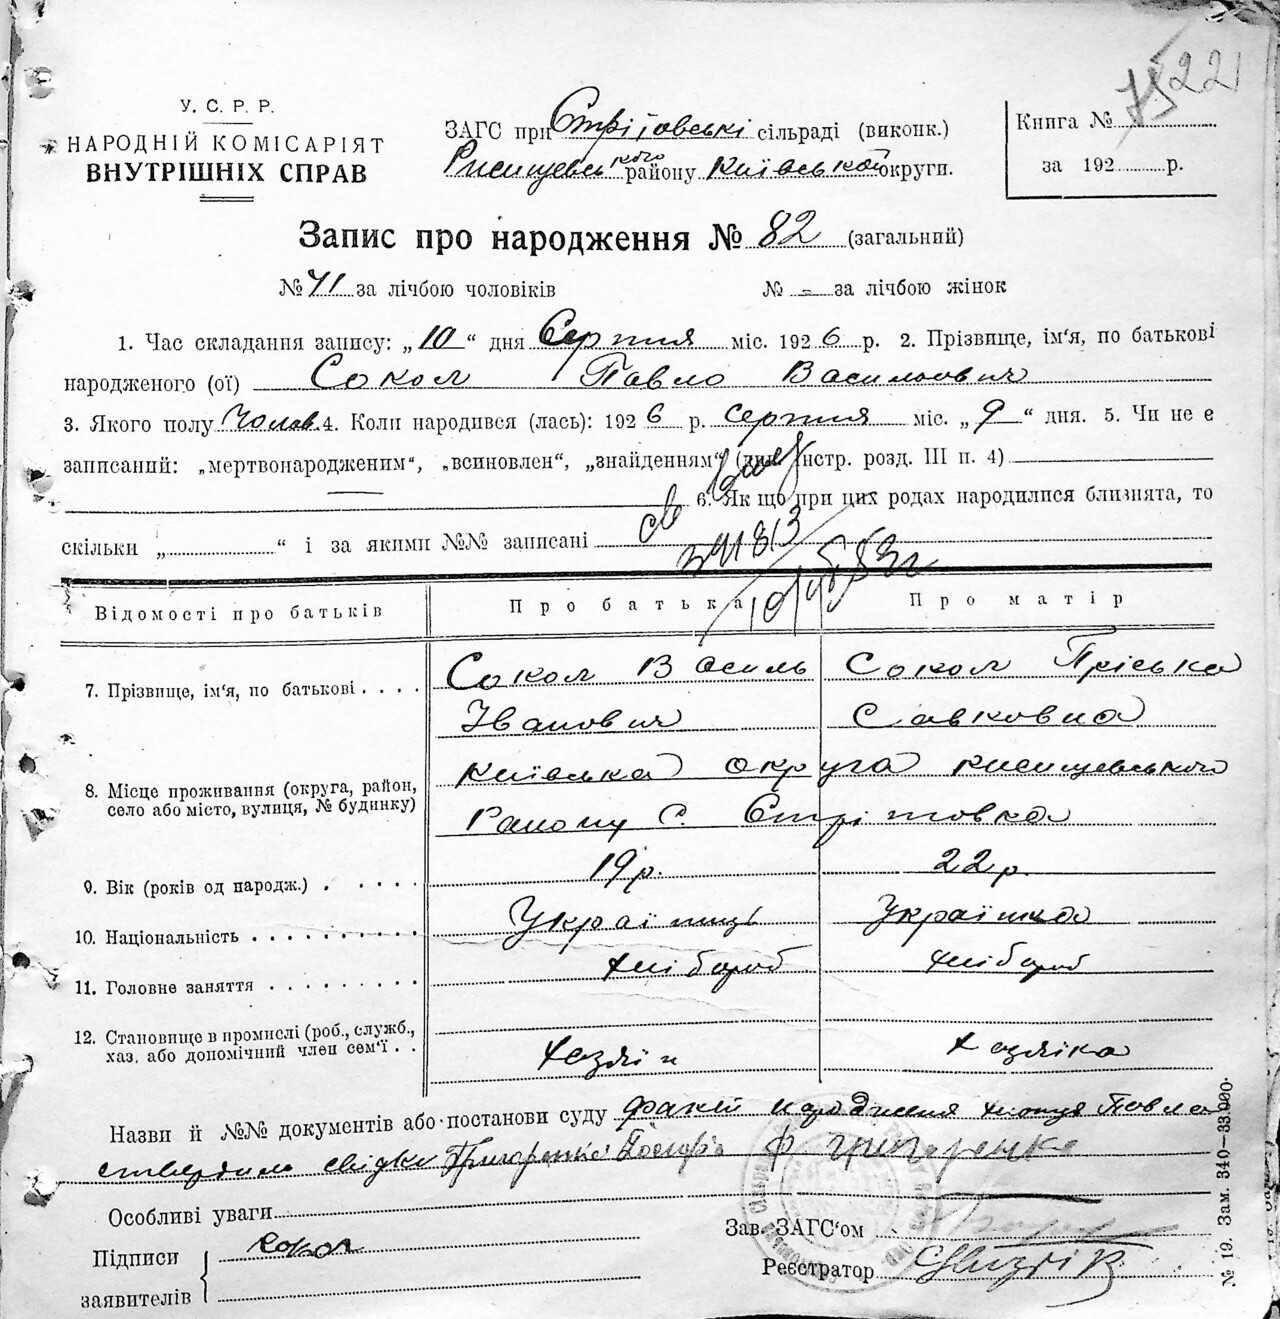 75 221
У. С. Р. Р.
НАРОДНІЙ КОМІСАРІЯТ
ВНУТРІШНІХ СПРАВ
ЗАГС при Стрітовські сільраді (виконк.)
Ржищевського району Київської округи.
Книга №
за 192 р.
Запис про народження № 82 (загальний)
№ 41 за лічбою чоловіків № - за лічбою жінок
1. Час складання запису: „10“ дня Серпня міс. 1926 р. 2. Прізвище, ім'я, по батькові
народженого (ої) Сокол Павло Васильович
3. Якого полу Чолов. 4. Коли народився (лась): 1926 р. серпня міс. „9“ дня. 5. Чи не є
записаний: „мертвонародженим“, „всиновлен“, „знайденням“ (див. інстр. розд. III п. 4)
6. Як що при цих родах народилися близнята, то
скільки „ “ і за якими №№ записані
Відомості про батьків Про батька Про матір
7. Прізвище, ім'я, по батькові . . . . Сокол Василь Іванович Сокол Пріська Савковна
8. Місце проживання (округа, район, село або місто, вулиця, № будинку) Київська округа Ржищевського Району С. Стрітовка
9. Вік (років од народж.) . . . . . 19 р. 22 р.
10. Національність . . . . . . . . . . Українець Українка
11. Головне заняття . . . . . . . . . хлібороб хлібороб
12. Становище в промислі (роб., служб., хаз. або допомічний член сем'ї . . хазяїн хазяїка
Назви й №№ документів або постанови суду факт народження хлопця Павла
ствердили свідки Григоренко Ф Григоренко
Особливі уваги
Підписи заявителів Сокол
Зав. ЗАГС'ом
Реєстратор
№ 19. Зам. 340—33.000.